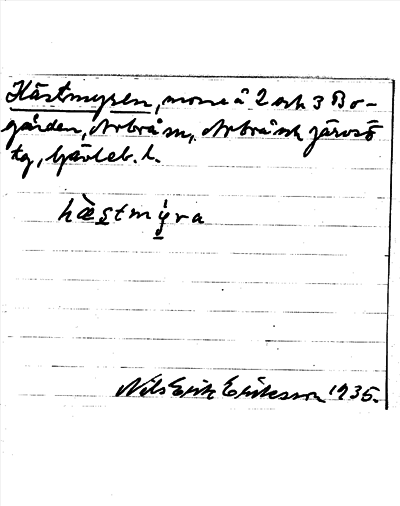 Hästmyren, mosse å 2 och 3 Bo-
gården, Arbrå sn, Arbrå och Järvsö
tg, Gävleb. l.
hæ̀stmy̆ra
Nils Erik Eriksson 1935.